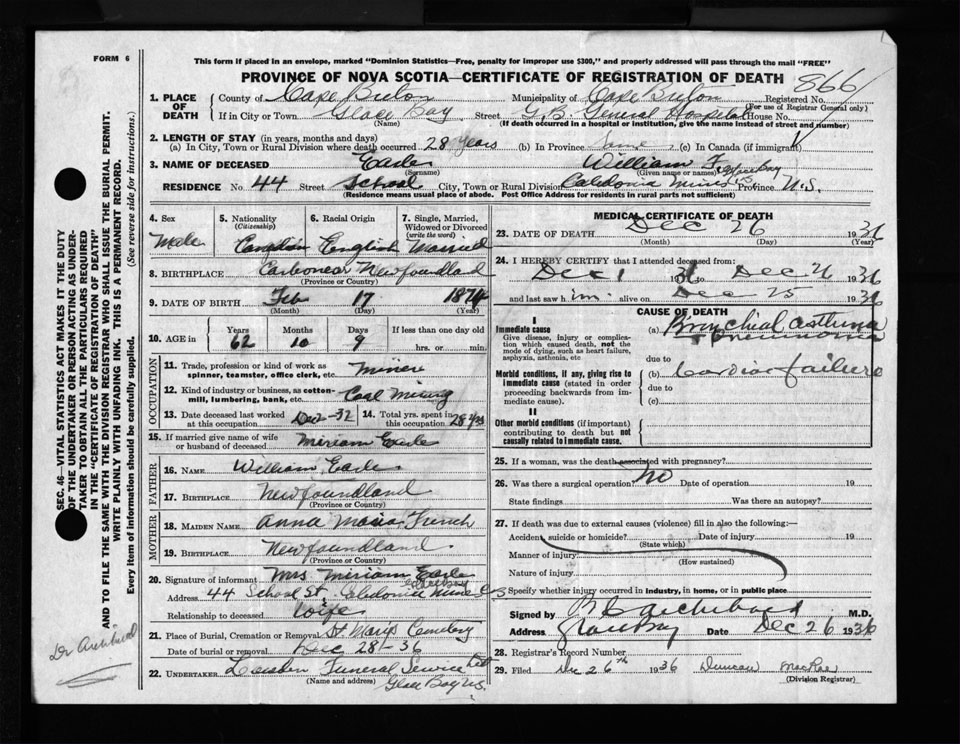 FORM 6
This form if placed in an envelope, marked "Dominion Statistics—Free, penalty for improper use $300," and properly addressed will pass through the mail "FREE"
PROVINCE OF NOVA SCOTIA—CERTIFICATE OF REGISTRATION OF DEATH
866
1. PLACE OF DEATH County of Cape Breton Municipality of Cape Breton Registered No. (For use of Registrar General only)
If in City or Town Glace Bay (Name) Street G.B. General Hospital House No.
(If death occurred in a hospital or institution, give the name instead of street and number)
2. LENGTH OF STAY (in years, months and days)
(a) In City, Town or Rural Division where death occurred 28 years (b) In Province Same (c) In Canada (if immigrant)
3. NAME OF DECEASED Earle (Surname) William F. (Given name or names)
RESIDENCE No. 44 Street School City, Town or Rural Division Glace Bay Caledonia Mines Province N.S.
(Residence means usual place of abode. Post Office Address for residents in rural parts not sufficient)
4. Sex Male
5. Nationality (Citizenship) Canadian
6. Racial Origin English
7. Single, Married, Widowed or Divorced (write the word) Married
8. BIRTHPLACE Carbonear Newfoundland
(Province or Country)
9. DATE OF BIRTH Feb 17 1874
(Month) (Day) (Year)
10. AGE in Years 62 Months 10 Days 9 If less than one day old hrs. or min.
OCCUPATION
11. Trade, profession or kind of work as spinner, teamster, office clerk, etc. Miner
12. Kind of industry or business, as cotton-mill, lumbering, bank, etc. Coal Mining
13. Date deceased last worked at this occupation Dec-32
14. Total yrs. spent in this occupation 28 yrs
15. If married give name of wife or husband of deceased Miriam Earle
FATHER
16. NAME William Earle
17. BIRTHPLACE Newfoundland
(Province or Country)
MOTHER
18. MAIDEN NAME Anna Maria French
19. BIRTHPLACE Newfoundland
(Province or Country)
20. Signature of informant Mrs Miriam Earle
Address 44 School St. Caledonia Mines Glace Bay
Relationship to deceased Wife
21. Place of Burial, Cremation or Removal St Marys Cemetery
Date of burial or removal Dec 28-36
22. UNDERTAKER Funeral Service Ltd
(Name and address) Glace Bay N.S.
MEDICAL CERTIFICATE OF DEATH
23. DATE OF DEATH Dec 26 1936
(Month) (Day) (Year)
24. I HEREBY CERTIFY that I attended deceased from:
Dec 1 36 to Dec 26 1936
and last saw him alive on Dec 25 1936
CAUSE OF DEATH
I
Immediate cause
Give disease, injury or complication which caused death, not the mode of dying, such as heart failure, asphyxia, asthenia, etc
(a) Bronchial asthma + Pneumonia
due to
Morbid conditions, if any, giving rise to immediate cause (stated in order proceeding backwards from immediate cause).
(b) Cardiac failure
due to
(c)
II
Other morbid conditions (if important) contributing to death but not causally related to immediate cause.
25. If a woman, was the death associated with pregnancy?
26. Was there a surgical operation? No Date of operation 19
State findings Was there an autopsy?
27. If death was due to external causes (violence) fill in also the following:—
Accident, suicide or homicide? (State which) Date of injury 19
Manner of injury (How sustained)
Nature of injury
Specify whether injury occurred in industry, in home, or in public place
Signed by Archibald M.D.
Address Glace Bay Date Dec 26 1936
28. Registrar's Record Number
29. Filed Dec 26th 1936 Duncan MacRae
(Division Registrar)
SEC. 46—VITAL STATISTICS ACT MAKES IT THE DUTY OF THE UNDERTAKER OR PERSON ACTING AS UNDERTAKER TO OBTAIN ALL THE PARTICULARS REQUIRED IN THE "CERTIFICATE OF REGISTRATION OF DEATH" AND TO FILE THE SAME WITH THE DIVISION REGISTRAR WHO SHALL ISSUE THE BURIAL PERMIT.
WRITE PLAINLY WITH UNFADING INK. THIS IS A PERMANENT RECORD.
Every item of information should be carefully supplied. (See reverse side for instructions.)
Dr Archibald